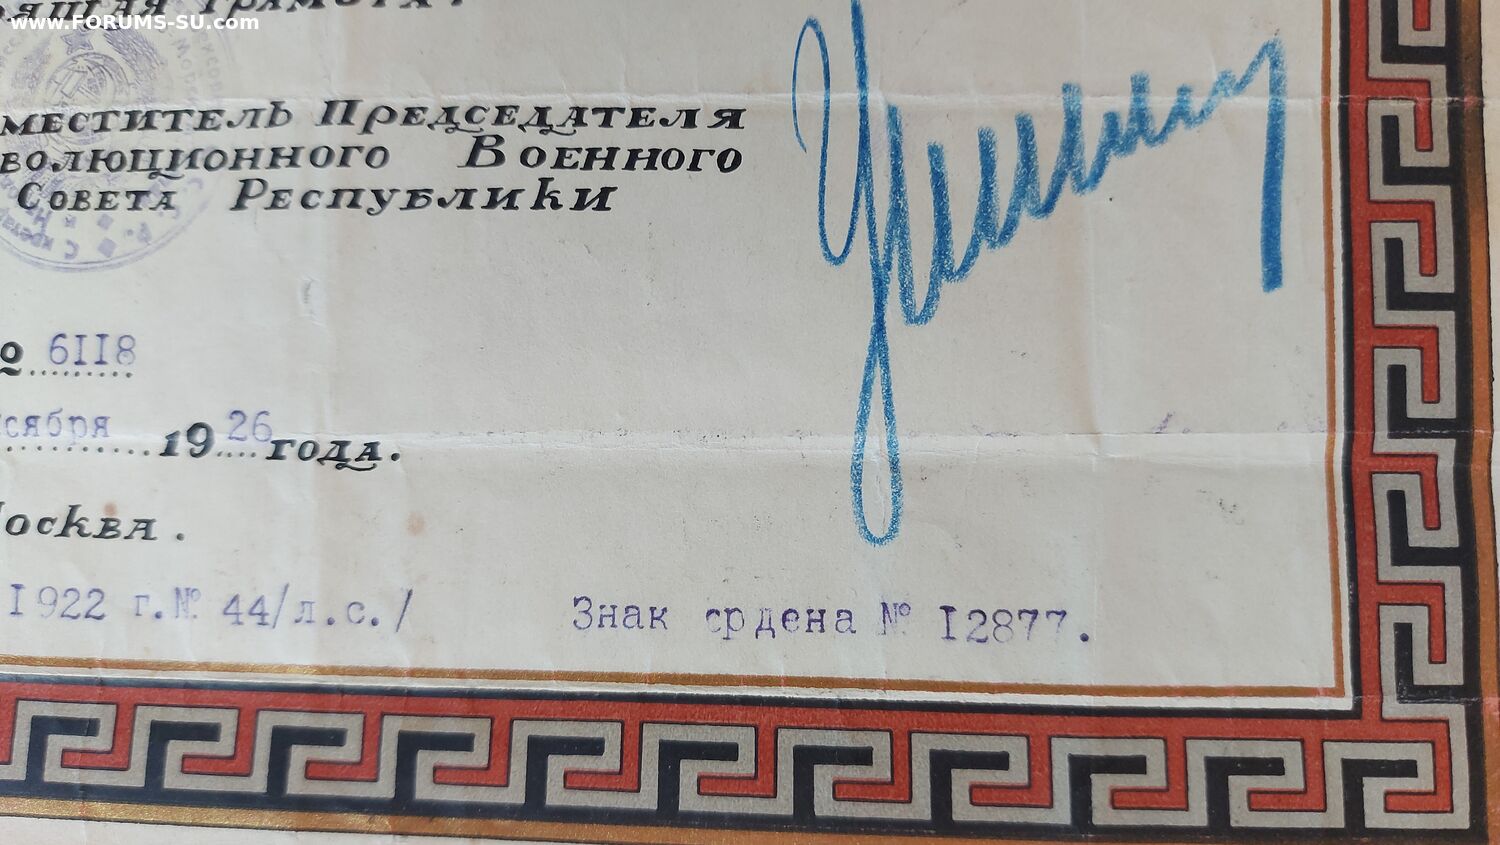 www.FORUMS-SU.com
ящая грамота.
меститель Председателя
волюционного Военного
Совета Республики
№ 6II8
ября 1926 года.
Москва.
I922 г.№ 44/л.с./ Знак срдена № I2877.